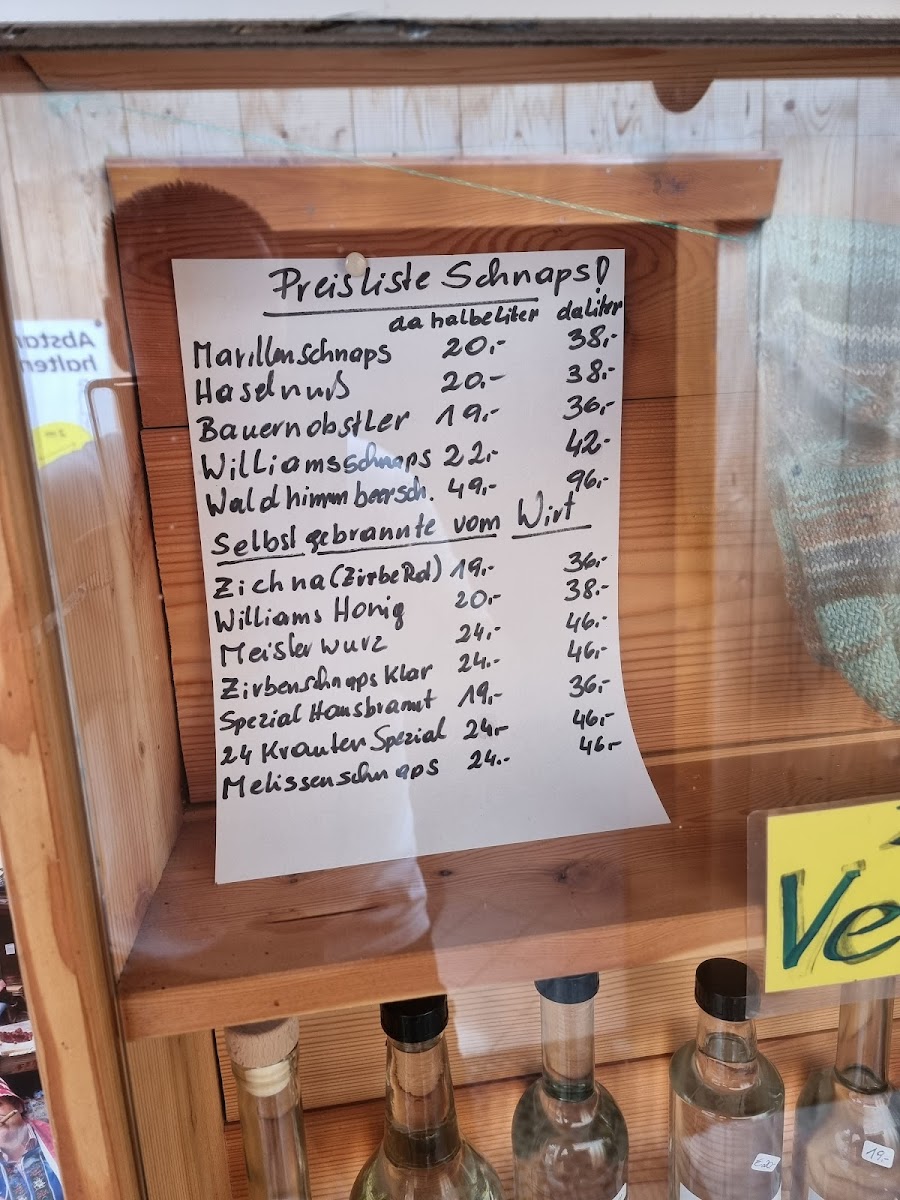 Preisliste Schnaps!
da halbeliter daliter
Marillenschnaps 20,- 38,-
Haselnuß 20,- 38,-
Bauernobstler 19,- 36,-
Williamsschnaps 22,- 42,-
Waldhimmbeersch. 49,- 96,-
Selbstgebrannte vom Wirt
Zichna (Zirbe Rot) 19,- 36,-
Williams Honig 20,- 38,-
Meisterwurz 24,- 46,-
Zirbenschnaps Klar 24,- 46,-
Spezial Hausbrannt 19,- 36,-
24 Kräuter Spezial 24,- 46,-
Melissenschnaps 24,- 46,-
Abstan
halten
2m
Ve
19,-